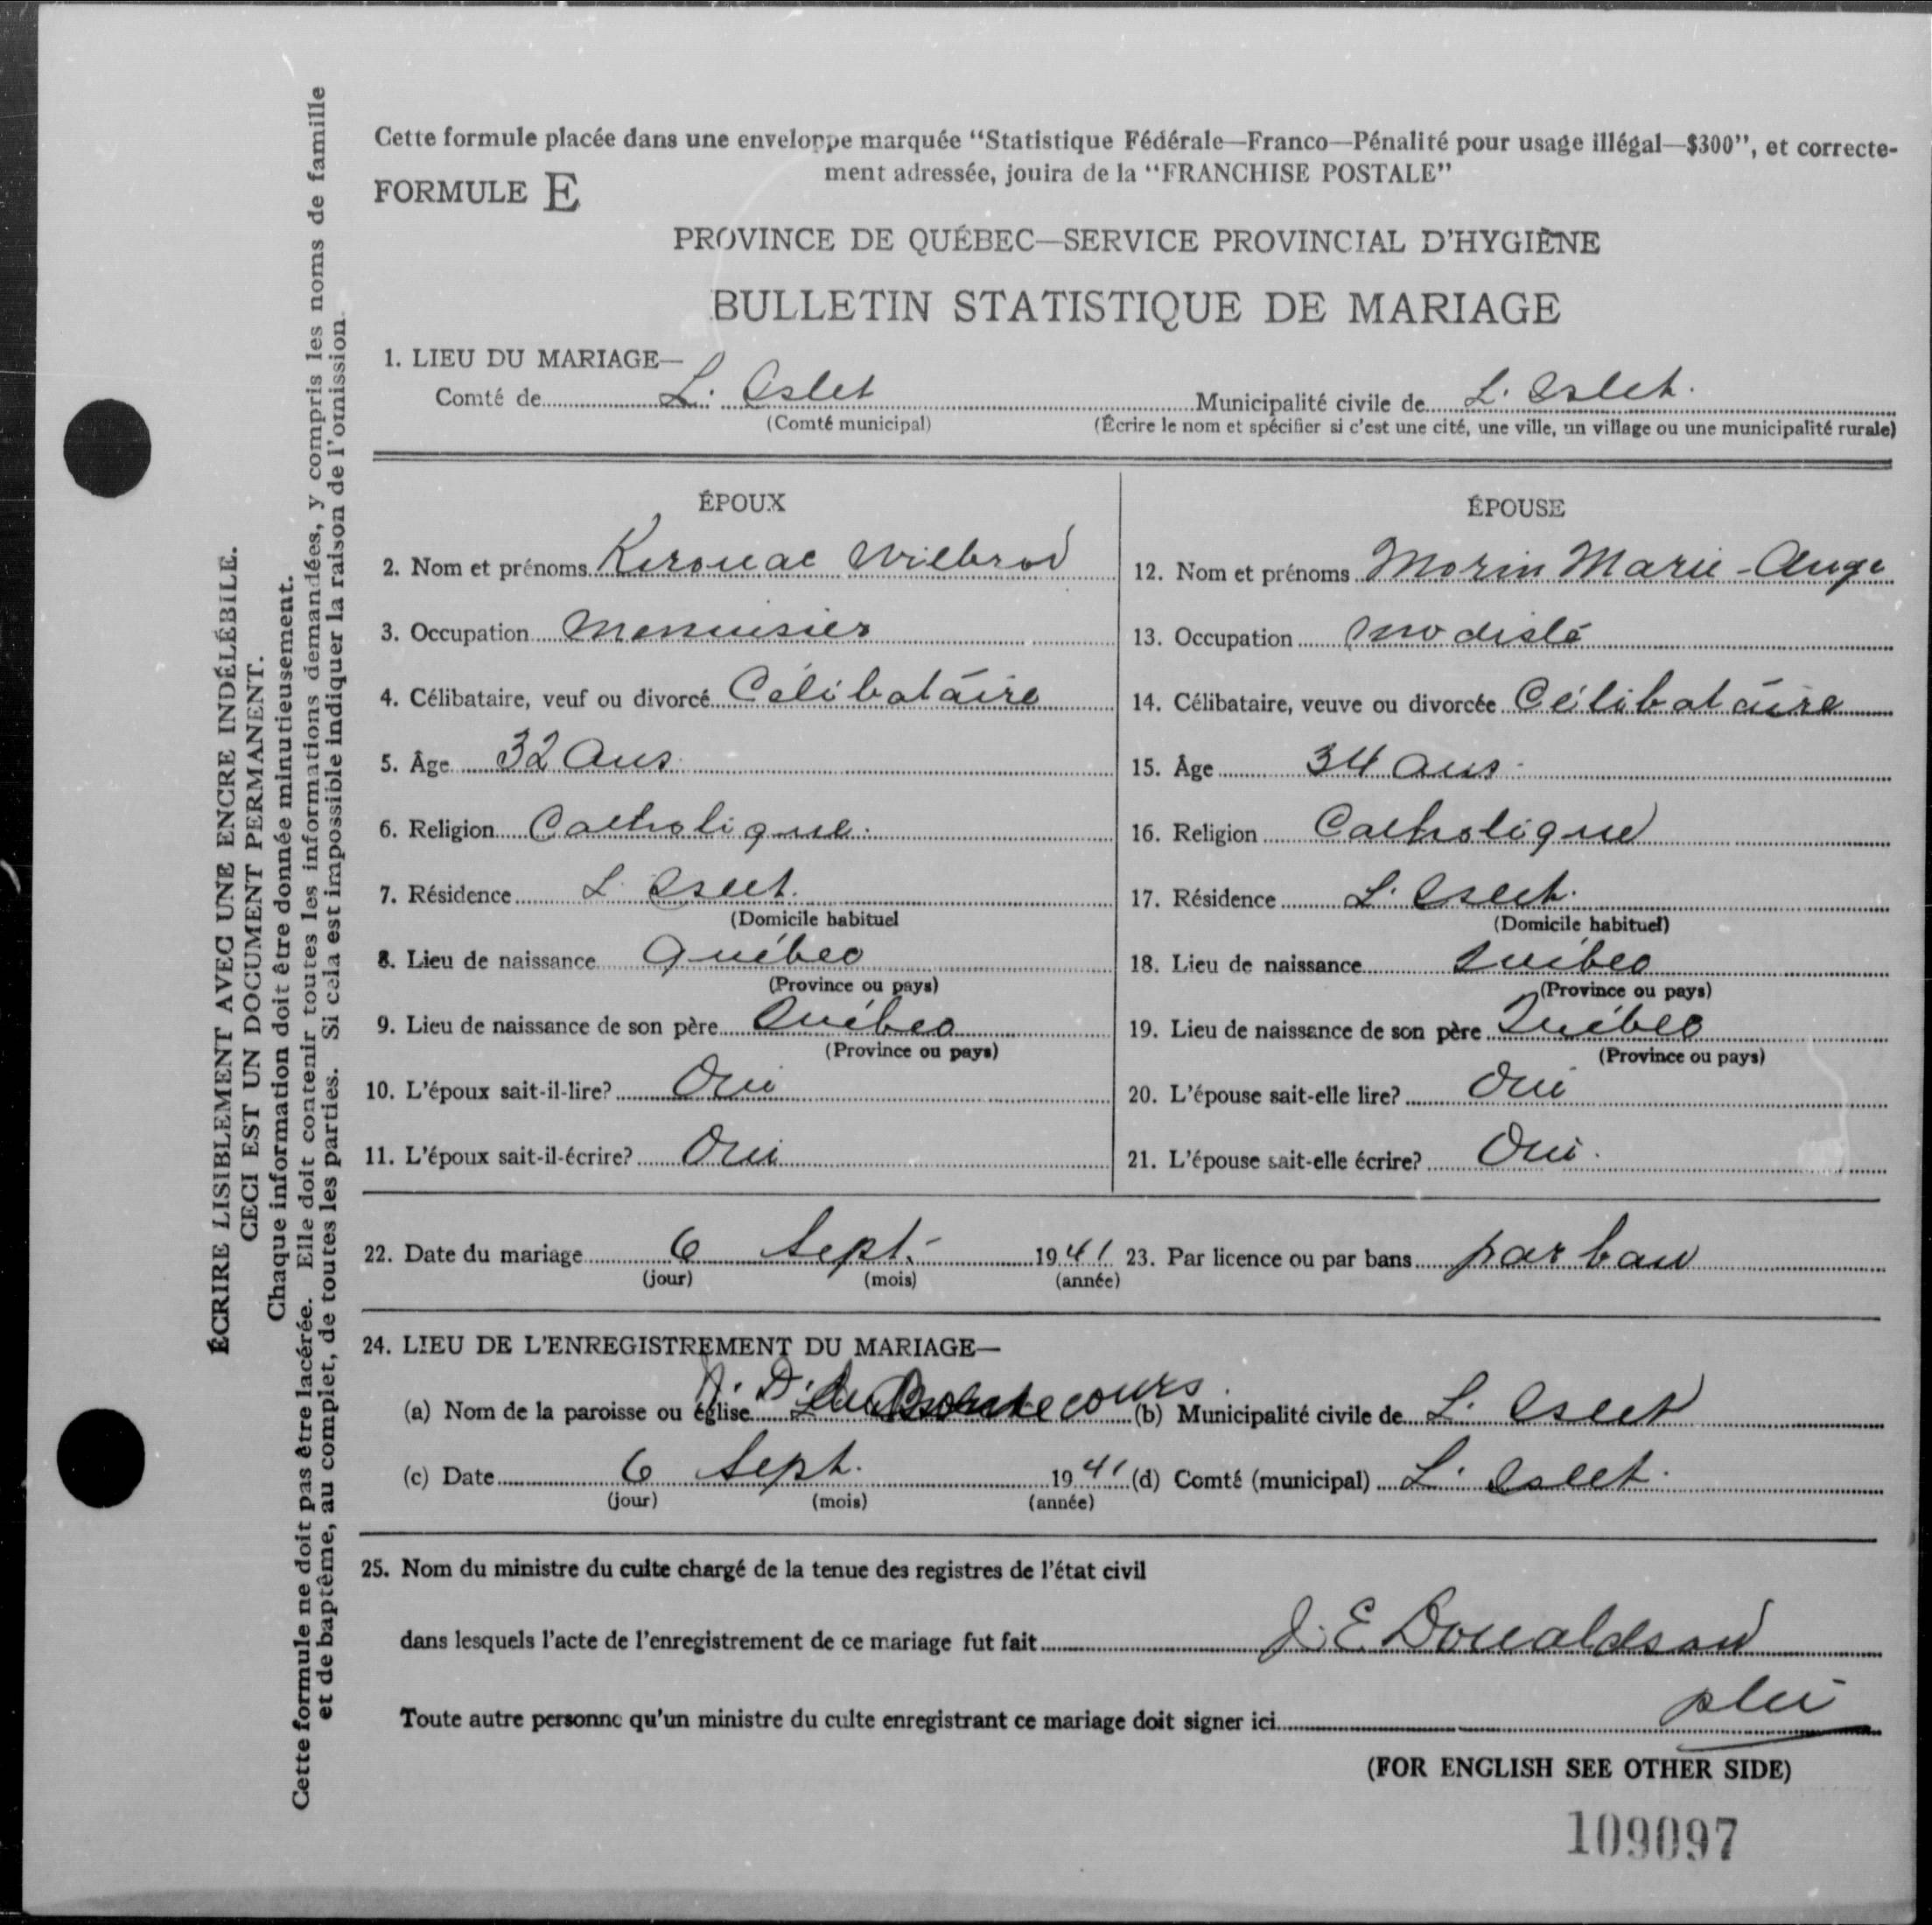 Cette formule placée dans une enveloppe marquée “Statistique Fédérale—Franco—Pénalité pour usage illégal—$300”, et correcte-
ment adressée, jouira de la “FRANCHISE POSTALE”
FORMULE E
PROVINCE DE QUÉBEC—SERVICE PROVINCIAL D'HYGIÈNE
BULLETIN STATISTIQUE DE MARIAGE
1. LIEU DU MARIAGE—
Comté de L'Islet Municipalité civile de L'Islet.
(Comté municipal) (Écrire le nom et spécifier si c'est une cité, une ville, un village ou une municipalité rurale)
ÉPOUX
2. Nom et prénoms Kirouac Wilbrod
3. Occupation Menuisier
4. Célibataire, veuf ou divorcé Célibataire
5. Âge 32 ans
6. Religion Catholique.
7. Résidence L'Islet.
(Domicile habituel
8. Lieu de naissance Québec
(Province ou pays)
9. Lieu de naissance de son père Québec
(Province ou pays)
10. L'époux sait-il-lire? Oui
11. L'époux sait-il-écrire? Oui
ÉPOUSE
12. Nom et prénoms Morin Marie-Ange
13. Occupation modiste
14. Célibataire, veuve ou divorcée Célibataire
15. Âge 34 ans.
16. Religion Catholique
17. Résidence L'Islet.
(Domicile habituel)
18. Lieu de naissance Québec
(Province ou pays)
19. Lieu de naissance de son père Québec
(Province ou pays)
20. L'épouse sait-elle lire? Oui
21. L'épouse sait-elle écrire? Oui.
22. Date du mariage 6 Sept. 1941 23. Par licence ou par bans par ban
(jour) (mois) (année)
24. LIEU DE L'ENREGISTREMENT DU MARIAGE—
(a) Nom de la paroisse ou église N. D. (b) Municipalité civile de L'Islet
(c) Date 6 Sept. 1941 (d) Comté (municipal) L'Islet.
(jour) (mois) (année)
25. Nom du ministre du culte chargé de la tenue des registres de l'état civil
dans lesquels l'acte de l'enregistrement de ce mariage fut fait J. E Donaldson
Toute autre personne qu'un ministre du culte enregistrant ce mariage doit signer ici
(FOR ENGLISH SEE OTHER SIDE)
109097
ÉCRIRE LISIBLEMENT AVEC UNE ENCRE INDÉLÉBILE.
CECI EST UN DOCUMENT PERMANENT.
Chaque information doit être donnée minutieusement.
Cette formule ne doit pas être lacérée. Elle doit contenir toutes les informations demandées, y compris les noms de famille
et de baptême, au complet, de toutes les parties. Si cela est impossible indiquer la raison de l'omission.